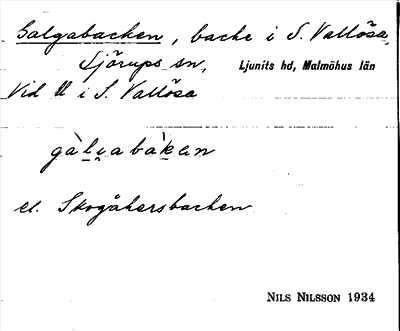 Galgabacken, backe i S. Vallösa,
Sjörups sn, Ljunits hd, Malmöhus län
Vid ll i S. Vallösa
gàlgabàkan
el. Skogåkersbacken
NILS NILSSON 1934